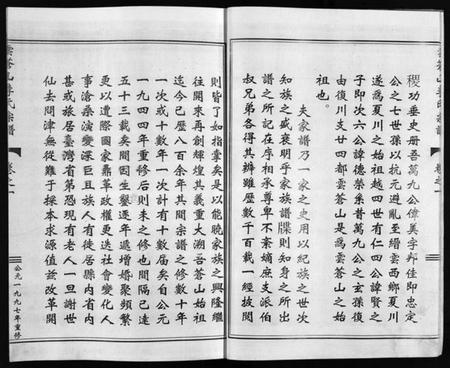 稷功垂史册吾萬九公偉美字邦佳即忠定
公之七世孫以抗元避亂至縉雲西鄉夏川
遂為夏川之始祖越四世有仁四公諱賢之
子即次六公諱德榮係昔萬九公之玄孫復
由復川支廿四都雲蒼山是為雲蒼山之始
祖也。
夫家譜乃一家之史用以紀族之世次
知族之盛衰明乎家族譜牒則知身之所出
譜之所記在序相承尊卑不紊嫡庶支派伯
叔兄弟各得其辨雖歷數千百載一經披閱
則皆了如指掌矣是以能晓家族之興隆繼
往開來再創輝煌其義重大溯吾蒼山始祖
迄今已歷八百余年其間宗譜之修數十年
一次或十數年一次計有十數屆矣自公元
一九四四年重修后則未之修也間隔已達
五十三載矣間因生齒逐年遞增婚娶頻繁
更以遭際國家鼎革政權更迭社會變化人
事滄桑演變深巨且族人有徙居縣內省內
甚或旅居臺灣省第恐現有老人一旦謝世
仙去問津無從難于探本求源值茲改革開
雲蒼山李氏宗譜
卷之一
公元一九九七年重修